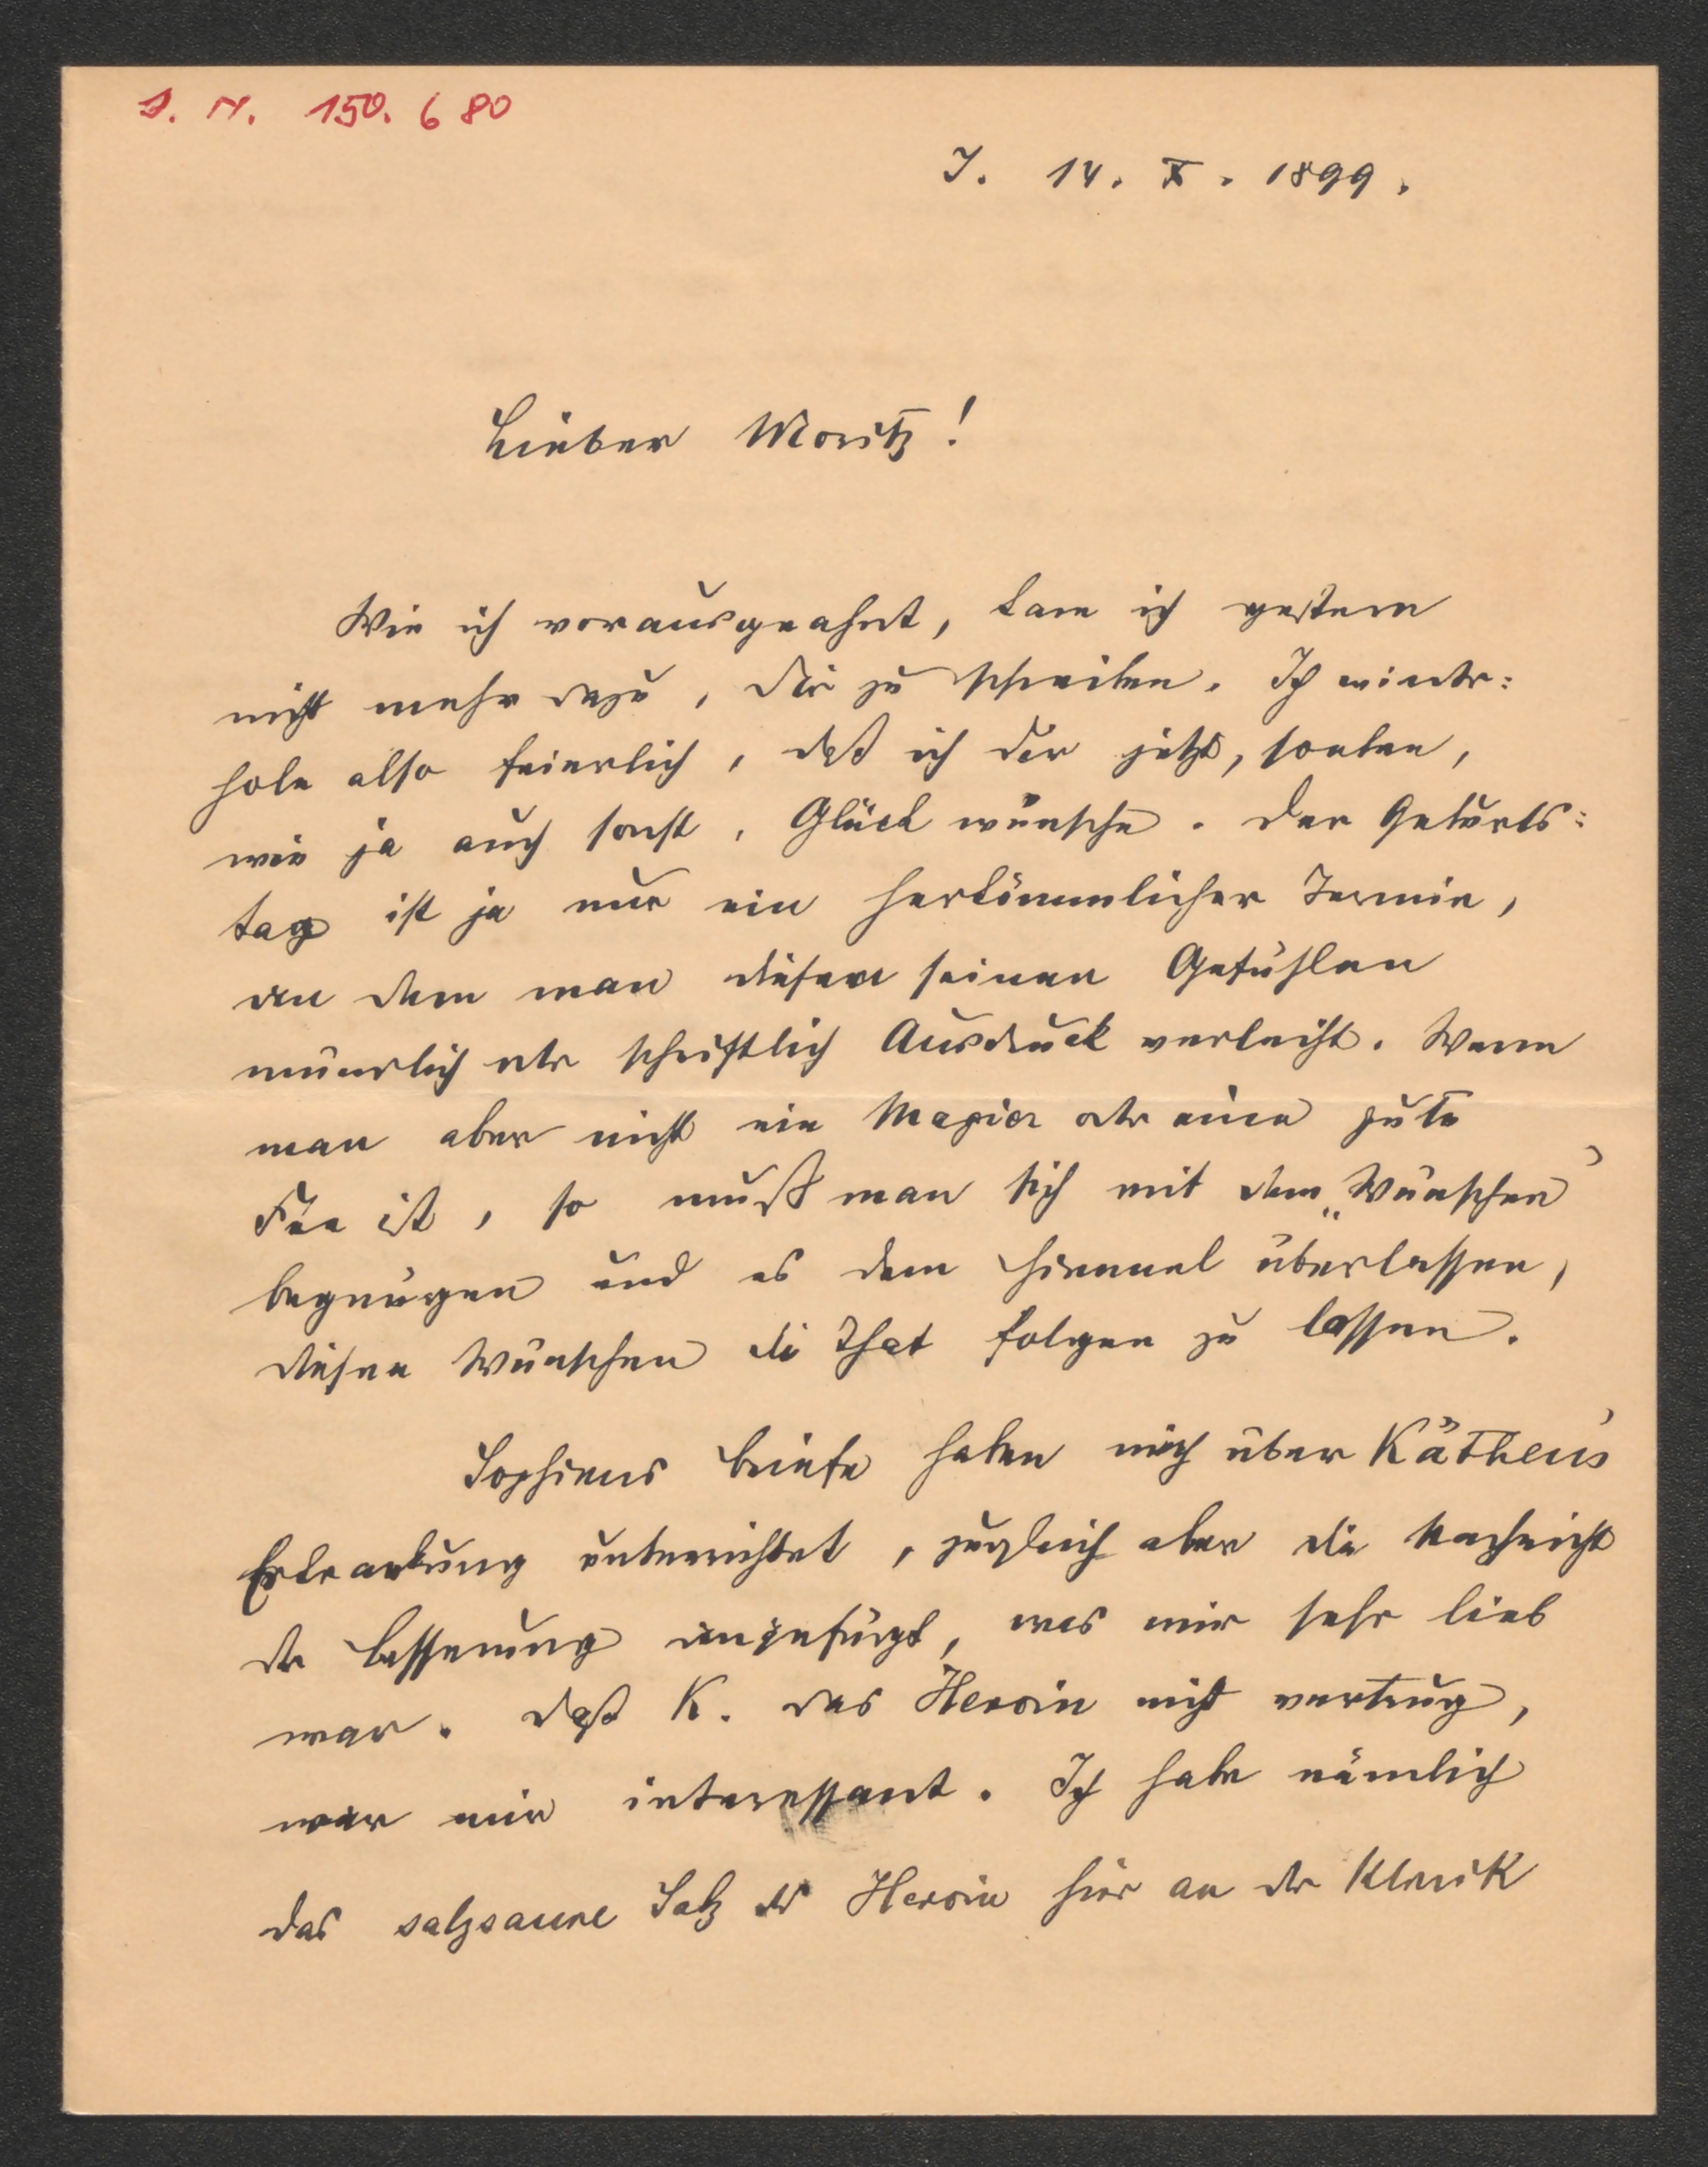 J. N. 150.680
I. 14. X. 1899.
Lieber Moritz!
Wie ich vorausgeahnt, kam ich gestern
nicht mehr dazu, Dir zu schreiben. Ich wieder:
hole also feierlich, daß ich Dir jetzt, soeben,
wie ja auch sonst, Glück wünsche. Der Geburts:
tag ist ja nur ein herkömmlicher Termin,
an dem man diesen seinen Gefühlen
mündlich oder schriftlich Ausdruck verleiht. Wenn
man aber nicht ein Magier oder eine gute
Fee ist, so muß man sich mit dem „Wünschen“
begnügen und es dem Himmel überlassen,
diesen Wünschen die That folgen zu lassen.
Sophiens Briefe haben mich über Käthen's
Erkrankung unterrichtet, zugleich aber die Nachricht
der Besserung angefügt, was mir sehr lieb
war. Daß K. das Heroin nicht vertrug,
war mir interessant. Ich habe nämlich
das salzsaure Salz des Heroin hier an der Klinik